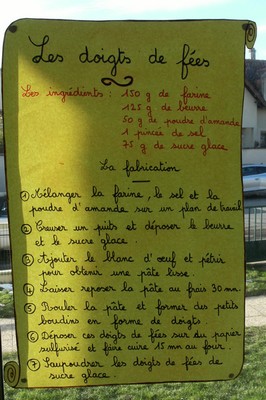 Les doigts de fées
Les ingrédients : 150 g de farine
125 g de beurre
50 g de poudre d'amande
1 pincée de sel
75 g de sucre glace
La fabrication
① Mélanger la farine, le sel et la
poudre d'amande sur un plan de travail
② Creuser un puits et déposer le beurre
et le sucre glace.
③ Ajouter le blanc d'œuf et pétrir
pour obtenir une pâte lisse.
④ Laisser reposer la pâte au frais 30 mn.
⑤ Rouler la pâte et former des petits
boudins en forme de doigts.
⑥ Déposer ces doigts de fées sur du papier
sulfurisé et faire cuire 15 mn au four.
⑦ Saupoudrer les doigts de fées de
sucre glace.